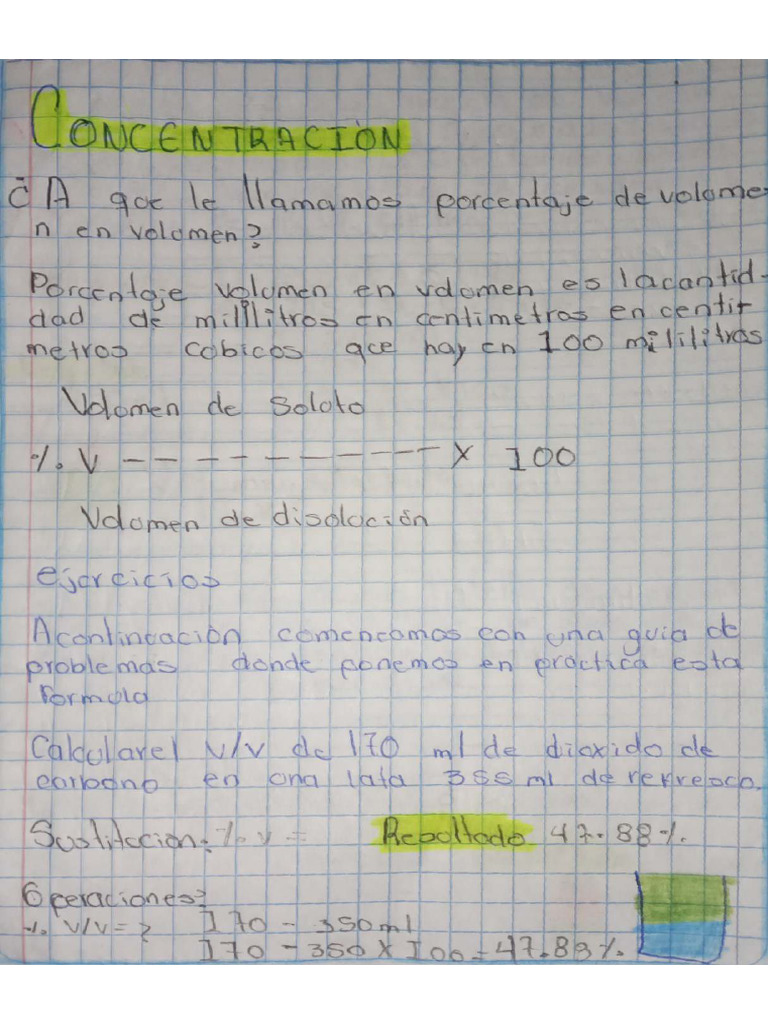 CONCENTRACIÓN
¿A que le llamamos porcentaje de volume
n en volumen?
Porcentaje volumen en volumen es lacantid-
dad de mililitros en centimetros en centit
metros cobicos que hay en 100 mililitros
Volumen de Soloto
%. V - - - - - - - - - - - x 100
Volumen de disolución
ejercicios
Acontinuación comencamos con una guia de
problemas donde ponemos en practica esta
formola
Calcularel v/v de 170 ml de dioxido de
carbono en una lata 355 ml de refresco.
Sustitucion: %. v = Resoltado 47.88%.
Operaciones:
%. V/V = ? 170 - 350ml
170 - 350 x 100 = 47.88%.